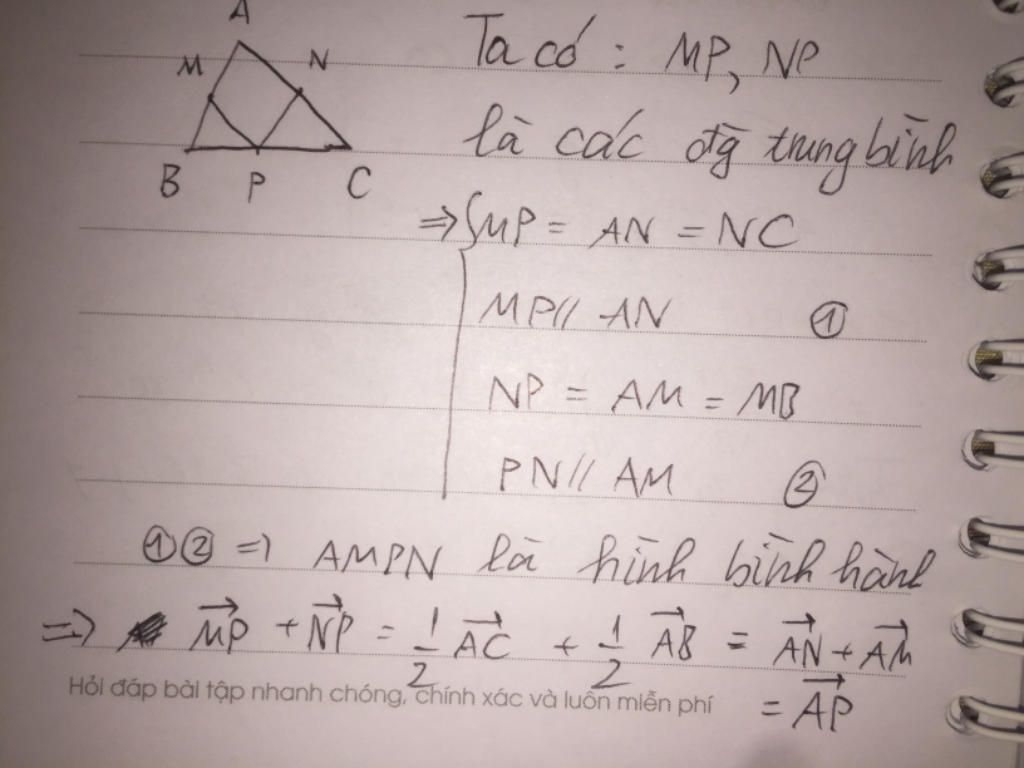 A
M N
B P C
Ta có : MP, NP
là các đg trung bình
⇒ { MP = AN = NC
MP // AN ①
NP = AM = MB
PN // AM ②
①② ⇒ AMPN là hình bình hành
⇒ $\overrightarrow{MP} + \overrightarrow{NP} = \frac{1}{2}\overrightarrow{AC} + \frac{1}{2}\overrightarrow{AB} = \overrightarrow{AN} + \overrightarrow{AM}$
$= \overrightarrow{AP}$
Hỏi đáp bài tập nhanh chóng, chính xác và luôn miễn phí